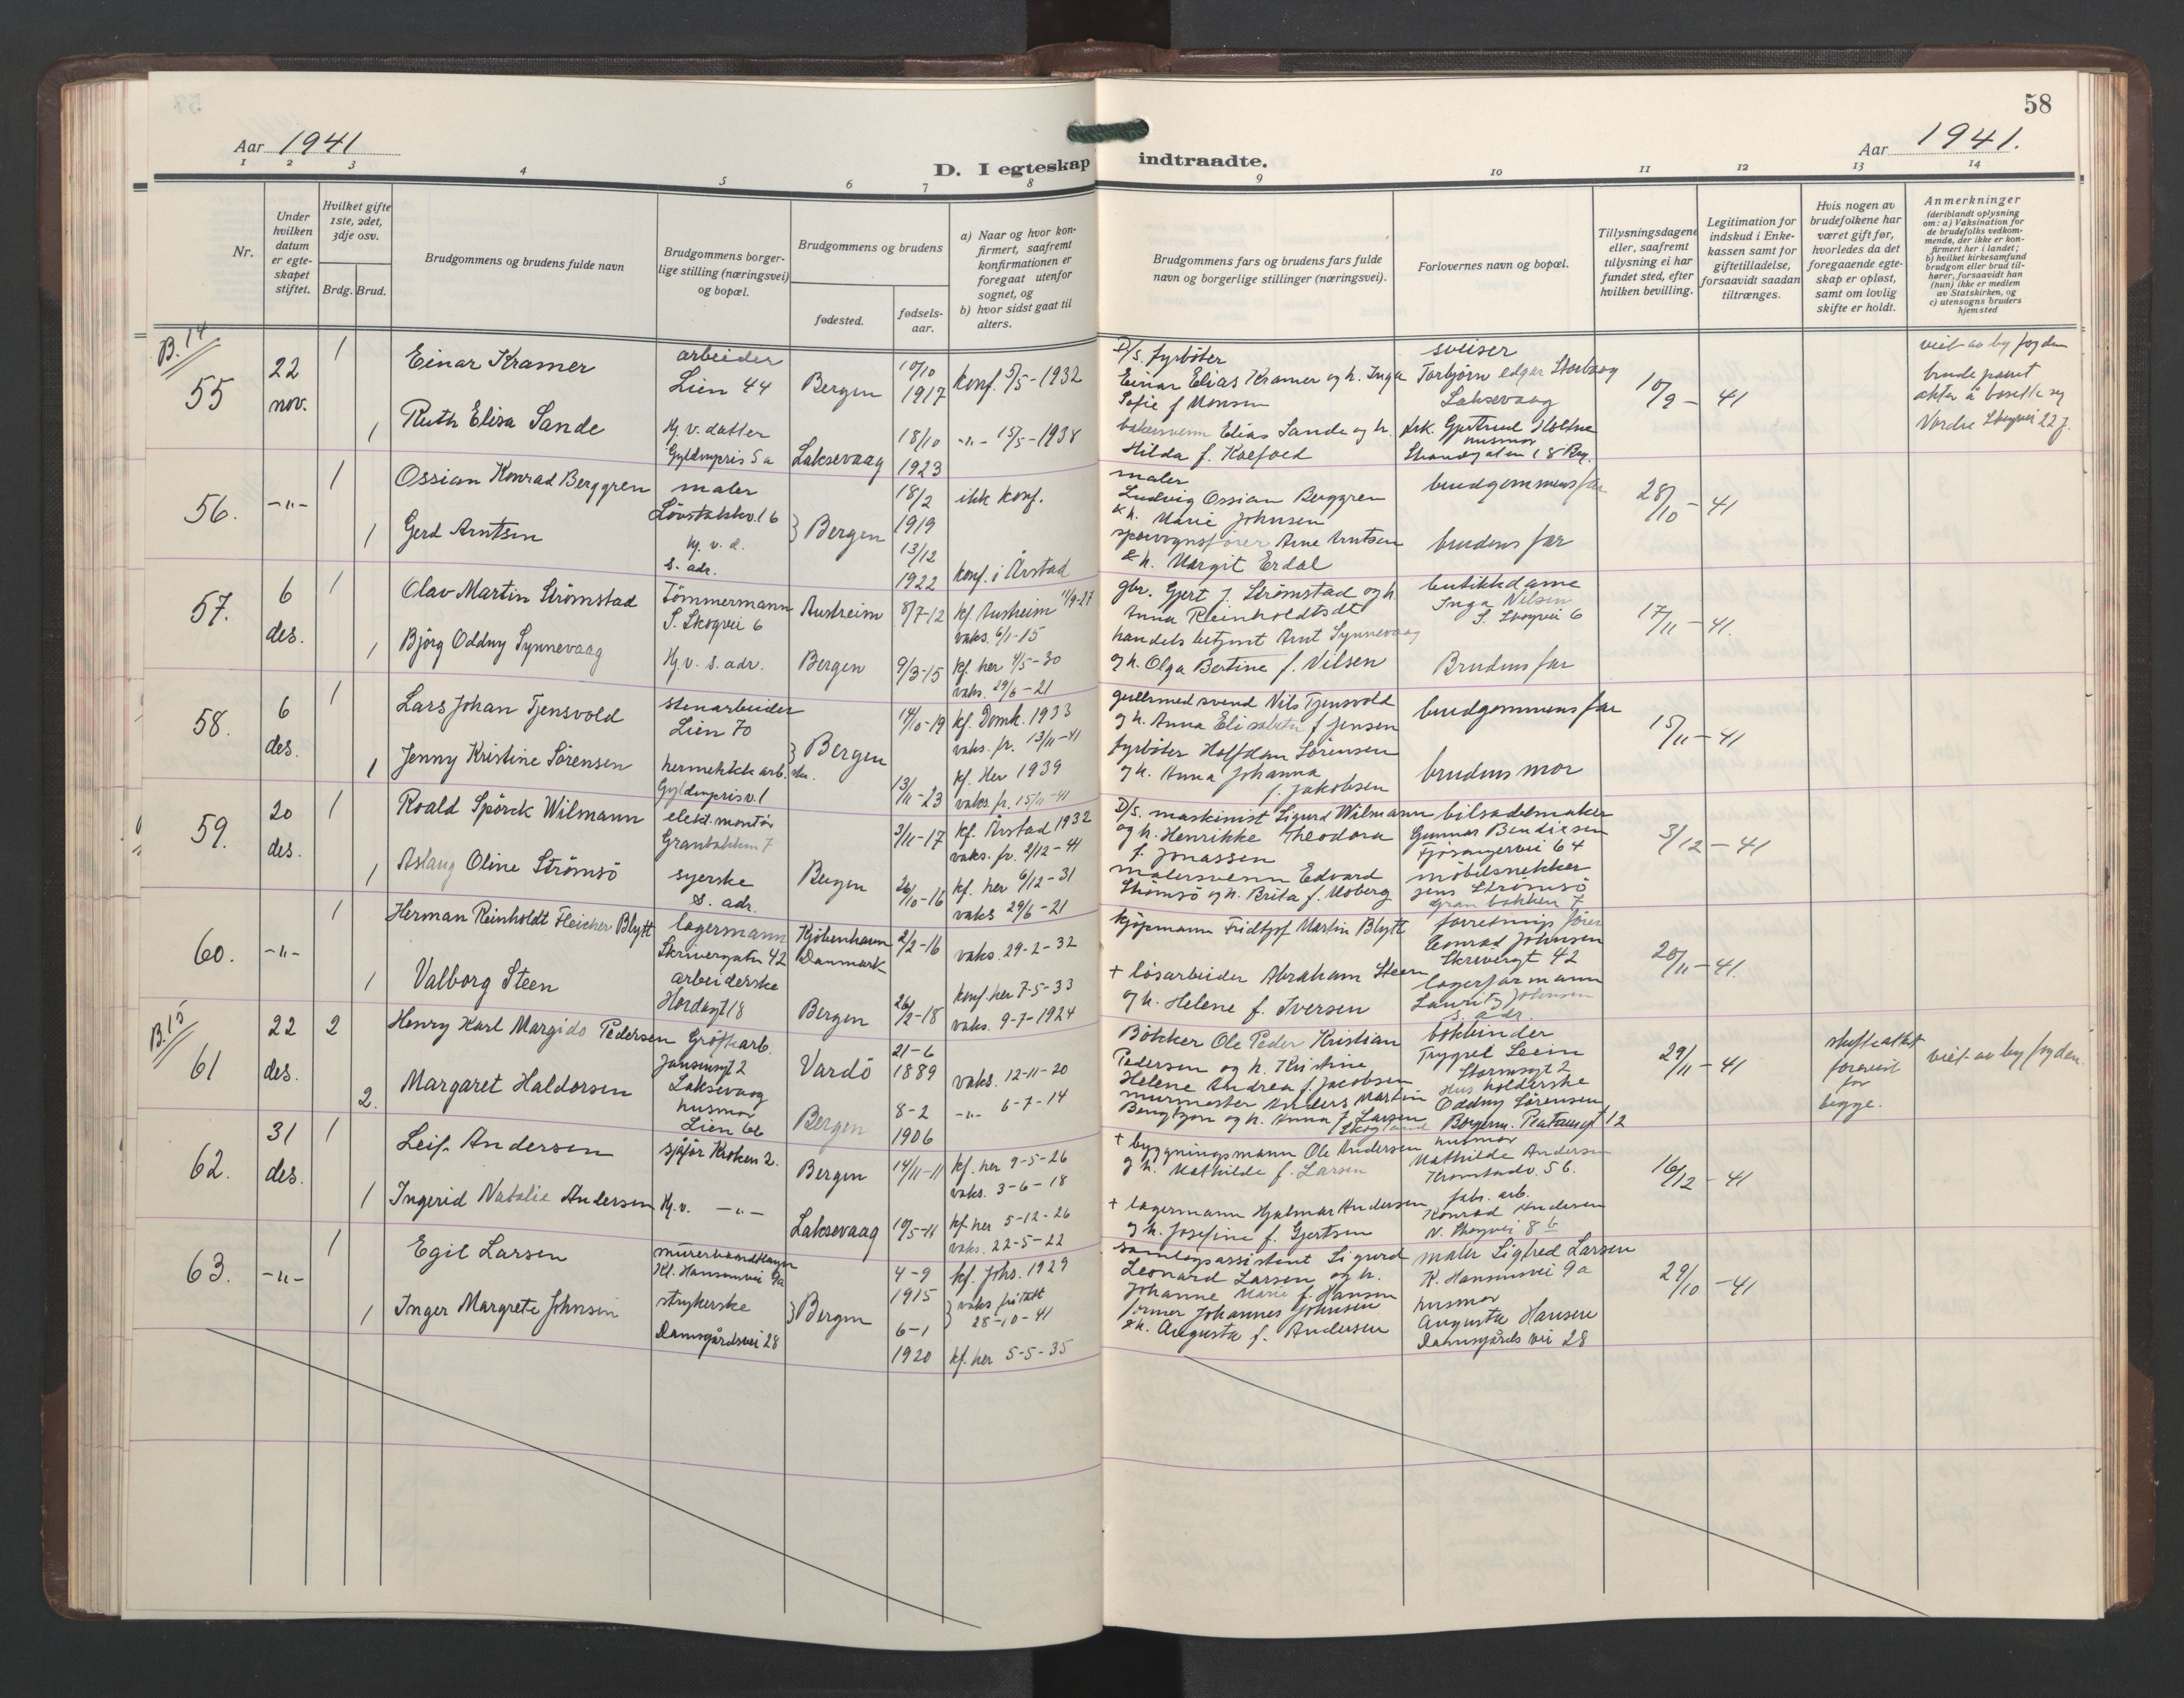 58
Aar 1941
D. I egteskap indtraadte.
Aar 1941.
1 2 3 4 5 6 7 8 9 10 11 12 13 14
Nr.
Under hvilken datum er egteskapet stiftet.
Hvilket gifte 1ste, 2det, 3dje osv.
Brdg. Brud.
Brudgommens og brudens fulde navn
Brudgommens borgerlige stilling (næringsvei) og bopæl.
Brudgommens og brudens
fødested.
fødselsaar.
a) Naar og hvor konfirmert, saafremt konfirmationen er foregaat utenfor sognet, og
b) hvor sidst gaat til alters.
Brudgommens fars og brudens fars fulde navn og borgerlige stillinger (næringsvei).
Forlovernes navn og bopæl.
Tillysningsdagene eller, saafremt tillysning ei har fundet sted, efter hvilken bevilling.
Legitimation for indskud i Enkekassen samt for giftetilladelse, forsaavidt saadan tiltrænges.
Hvis nogen av brudefolkene har været gift før, hvorledes da det foregaaende egteskap er opløst, samt om lovlig skifte er holdt.
Anmerkninger
(deriblandt oplysning om: a) Vaksination for de brudefolks vedkommende, der ikke er konfirmert her i landet;
b) hvilket kirkesamfund brudgom eller brud tilhører, forsaavidt han (hun) ikke er medlem av Statskirken, og
c) utensogns bruders hjemsted
B. 14
55
22 nov.
1
Einar Kramer
arbeider
Lien 44
Bergen
10/10 1917
konf. 5/5-1932
D/S. fyrbøter
Einar Elias Kramer og h. Inga
Sofie f Monsen
sveiser
Laksevaag
10/9 - 41
viet av byfogden
brudeparet
akter å bosette seg
1
Ruth Elisa Sande
Hj. v. datter
Gyldenpris 5a
Laksevaag
18/10 1923
-"- 15/5-1938
bakersvenn Elias Sande og h.
Hilda f. Koefoed
husmor
56.
-"-
1
Ossian Konrad Berggren
maler
Løvstakkv. 16
Bergen
18/2 1919
ikk konf.
maler
Ludvig Ossian Berggren
& h. Marie Johnsen
brudgommens far
28/10 - 41
1
Gerd Arntsen
hj. v. d.
s. adr.
13/12 1922
konf. i Årstad
sporvognsfører Arne Arntsen
& h. Margit Erdal
brudens far
57.
6 des.
1
Olav Martin Strømstad
Tømmermann
S. Skogvei 6
Austreim
8/7-12
kf Austreim 11/9-27
vaks. 6/1-15
gbr. Gjert J. Strømstad og h
Anna Reinholdtsdt
butikkdame
Inga Nilsen
S. Skogvei 6
17/11 - 41.
1
Bjørg Oddny Synnevaag
Hj.v. s. adr.
Bergen
9/3-15
kf. her 4/5-30
vaks. 29/6-21
handels betjent Arnt Synnevaag
og h. Olga Bertine f. Nilsen
Brudens far
58.
6 des.
1
Lars Johan Tjensvold
stenarbeider
Lien 70
Bergen
14/10-19
kf. Domk. 1933
vaks. fr. 13/11-41
gullsmed svend Nils Tjensvold
og h. Anna Elisabeth f Jensen
brudgommens far
15/11 - 41
1
Jenny Kristine Sørensen
hermetikk arb. ske.
Gyldenprisv. 1
13/11-23
kf. Her 1939
vaks. fr. 15/11-41
fyrbøter Halfdan Sørensen
og h. Anna Johanna
f. Jakobsen
brudens mor
59.
20 des.
1
Roald Spörck Wilmann
elekt. montør
Granbakken 7
3/11-17
kf. Årstad 1932
vaks. fr. 2/12-41
D/S. maskinist Sigurd Wilmann
og h. Henrikke Theodora
f. Jonassen
bilsadelmaker
Gunnar Bendixsen
Fjøsangervei 64
3/12 - 41
1
Aslaug Oline Strømsö
syerske
s. adr.
Bergen
26/10-16
kf. her 6/12-31
vaks 29/6-21
malersvenn Edvard
Strømsö og h. Brita f. Moberg
møbelsnekker
Jens Strømsö
Granbakken 7
60.
-"-
1
Herman Reinholdt Fleicher Blytt
lagermann
Skrivergaten 42
Kjøbenhavn
Danmark
2/2-16
vaks. 29-2-32
kjøpmann Fridtjof Martin Blytt
forretnings fører
Conrad Johnsen
Skrivergt 42
20/11 - 41.
1
Valborg Steen
arbeiderske
Hordagt 18
Bergen
26/2-18
konf. her 7-5-33
vaks. 9-7-1924
+ løsarbeider Abraham Steen
og h. Helene f. Iversen
lagerformann
Lauritz Johnsen
s. adr.
B. 15
61
22 des.
2
Henry Karl Margido Pedersen
Grøftearb.
Laksevaag
Vardö
21-6 1889
vaks. 12-11-20
Bøkker Ole Peder Kristian
Pedersen og h. Kristine
Helene Andrea f. Jacobsen
bokbinder
29/11 - 41
skifteattest
forevist
for
begge.
viet av byfogden.
2.
Margaret Haldorsen
husmor
Lien 66
Bergen
8-2 1906
-"- 6-7-14
murmester Anders Martin
Bengtzon og h. Anna f. Larsen
Skogland
Husholderske
Oddny Sørensen
62.
31 des.
1
Leif Andersen
sjåfør Kroken 2.
Bergen
14/11-11
kf. her 9-5-26
vaks. 3-6-18
+ bygningsmann Ole Andersen
g h. Mathilde f. Larsen
husmor
Mathilde Andersen
16/12 - 41
1
Ingerid Natalie Andersen
Hj.v. -"-
Laksevaag
10/5-11
kf her 5-12-26
vaks. 22-5-22
+ lagermann Hjalmar Andersen
og h. Josefine f. Gjertsen
fabr. arb.
Konrad Andersen
N. Skogvei 8 b
63.
-"-
1
Egil Larsen
Kl. Hansensvei 9a
Bergen
4-9 1915
kf. Johs. 1929
vaks fritatt
28-10-41
Sigurd
Leonard Larsen og h.
Johanne Marie f. Hansen
maler Sigfred Larsen
K. Hansensvei 9a
29/10 - 41
1
Inger Margrete Johnsen
strykerske
Damsgårdsvei 28
6-1 1920
kf. her 5-5-35
former Johannes Johnsen
& h. Augusta f. Andersen
husmor
Augusta Hansen
Damsgårds vei 28